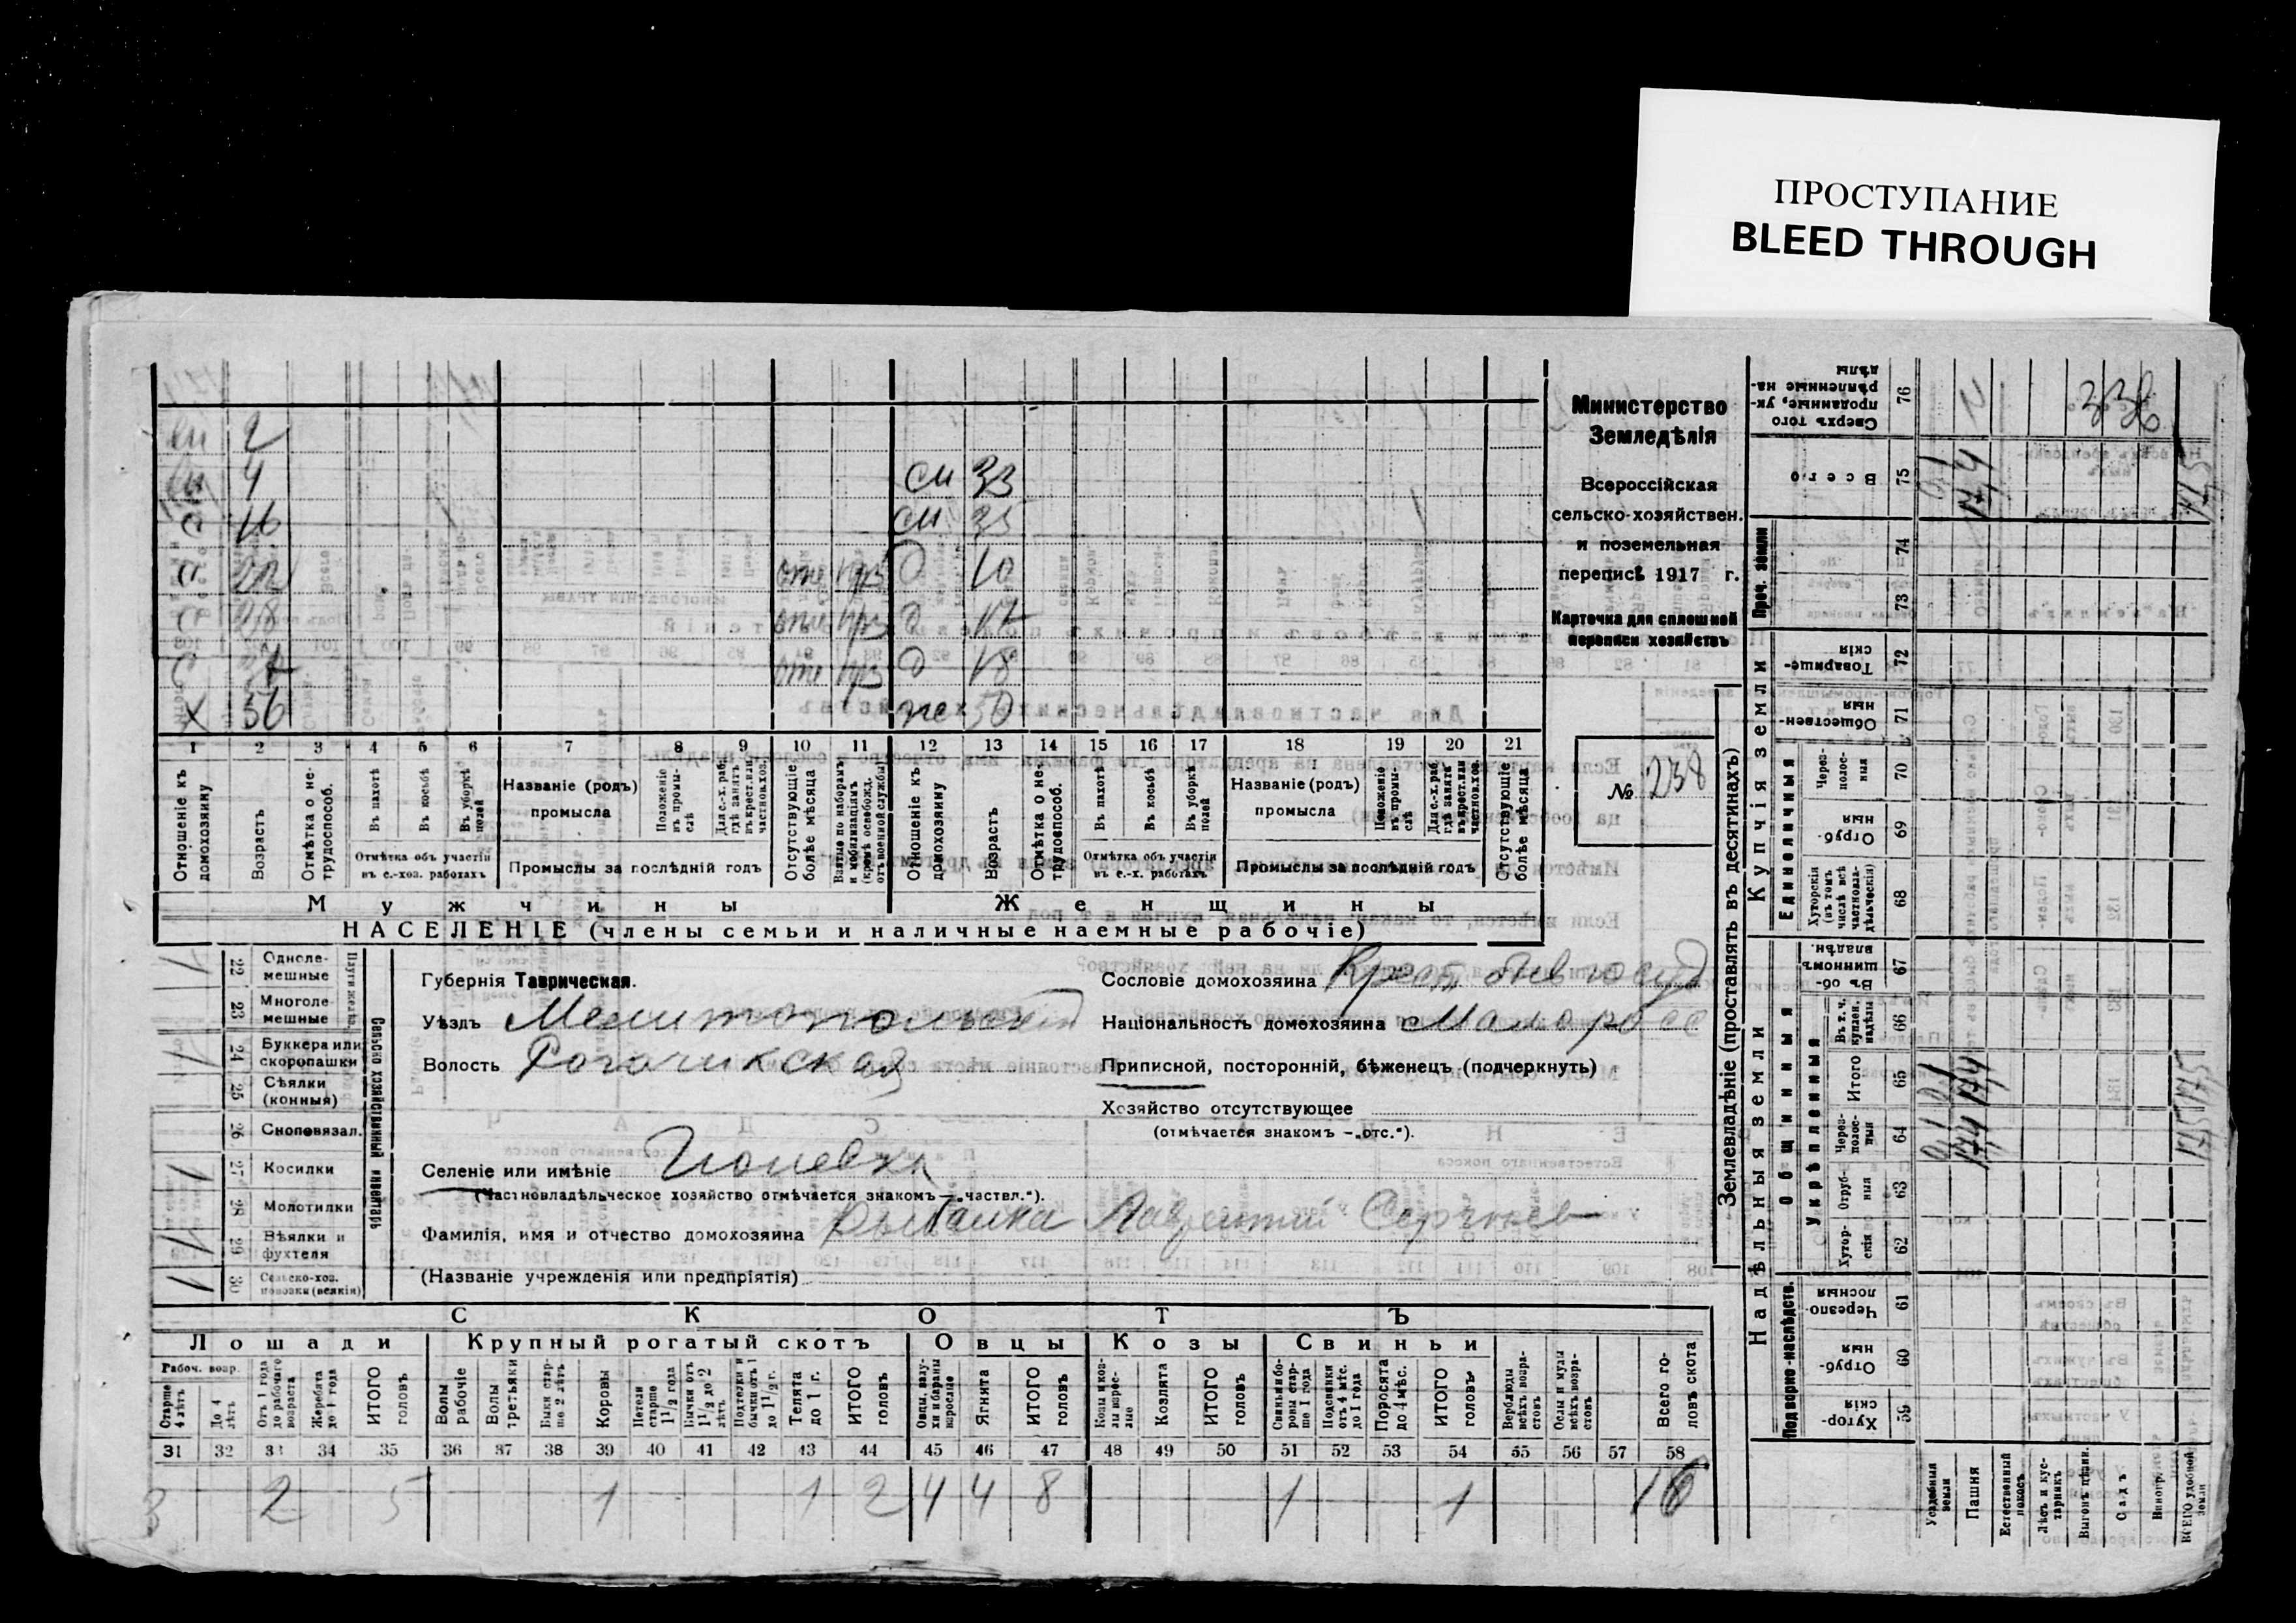 ПРОСТУПАНИЕ
BLEED THROUGH
2
4 см 33
с 16 см 35
с 22 отс Д 10
с отс Д
с отс Д 18
х 56 же 50
1 2 3 4 5 6 7 8 9 10 11 12 13 14 15 16 17 18 19 20 21
Отношеніе къ домохозяину
Возрастъ
Отмѣтка о не-трудоспособ.
Въ пахотѣ
Въ косьбѣ
Въ уборкѣ полей
Отмѣтка объ участіи
въ с.-хоз. работахъ
Названіе (родъ)
промысла
Положеніе въ промы-слѣ
Для с.-х. раб. гдѣ занятъ въ крест. или частнов. хоз.
Промыслы за послѣдній годъ
Отсутствующіе болѣе мѣсяца
Взятые по наборамъ и мобилизаціямъ (кромѣ освобожд. отъ военной службы)
Отношеніе къ домохозяину
Возрастъ
Отмѣтка о не-трудоспособ.
Въ пахотѣ
Въ косьбѣ
Въ уборкѣ полей
Отмѣтка объ участіи
въ с.-х. работахъ
Названіе (родъ)
промысла
Положеніе въ промы-слѣ
Для с.-х. раб. гдѣ занята въ крест. или частнов. хоз.
Промыслы за послѣдній годъ
Отсутствующіе болѣе мѣсяца
Мужчины Женщины
НАСЕЛЕНІЕ (члены семьи и наличные наемные рабочіе)
Министерство
Земледѣлія
Всероссійская
сельско-хозяйствен.
и поземельная
перепись 1917 г.
Карточка для сплошной
переписи хозяйствъ
№ 238
22 Одноле-мешные
23 Многоле-мешные
24 Буккера или скоропашки
25 Сѣялки (конныя)
26 Сноповязал.
27 Косилки
28 Молотилки
29 Вѣялки и фухтеля
30 Сельско-хоз. повозки (всякія)
Сельско хозяйственный инвентарь
Губернія Таврическая.
Уѣздъ Мелитопольскій
Волость Рогачикская
Селеніе или имѣніе
(Частновладѣльческое хозяйство отмѣчается знакомъ — „частвл.“).
Фамилія, имя и отчество домохозяина Лаврентій Сергѣев
(Названіе учрежденія или предпріятія)
Сословіе домохозяина Крест.
Національность домохозяина Малоросс
Приписной, посторонній, бѣженецъ (подчеркнуть)
Хозяйство отсутствующее
(отмѣчается знакомъ — „отс.“).
СКОТЪ
Лошади Крупный рогатый скотъ Овцы Козы Свиньи
Рабоч. возр.
Старше 4 лѣтъ
До 4 лѣтъ
Отъ 1 года до рабочаго возраста
Жеребята до 1 года
ИТОГО головъ
Волы рабочіе
Волы третьяки
Быки стар-ше 2 лѣтъ
Коровы
Нетели старше 1 1/2 года
Бычки отъ 1 1/2 до 2 лѣтъ
Подтелки и бычки отъ 1 до 1 1/2 г.
Телята до 1 г.
ИТОГО головъ
Овцы, валу-хи и бараны взрослые
Ягнята
ИТОГО головъ
Козы и коз-лы взрос-лые
Козлята
ИТОГО головъ
Свиньи и бо-ровы стар-ше 1 года
Подсвинки отъ 4 мѣс. до 1 года
Поросята до 4 мѣс.
ИТОГО головъ
Верблюды всѣхъ возра-стовъ
Ослы и мулы всѣхъ возра-стовъ
Всего го-ловъ скота
31 32 33 34 35 36 37 38 39 40 41 42 43 44 45 46 47 48 49 50 51 52 53 54 55 56 57 58
3 2 5 1 1 2 4 4 8 1 1 16
Землевладѣніе (проставлять въ десятинахъ)
Купчія земли
Надѣльныя земли
Сверхъ того проданные, ук-рѣпленные на-дѣлы 76
Всего 75
Проч. земли 74 73
Товарище-скія 72
Обществен-ныя 71
Единоличныя
Через-полос-ныя 70
Отруб-ныя 69
Хуторскія (въ томъ числѣ всѣ частновла-дѣльческія) 68
Общинныя
Въ об-щинномъ владѣн. 67
Укрѣпленныя
Въ т. ч. куплен. надѣлы 66
Итого 65
Через-полос-ныя 64
Отруб-ныя 63
Хутор-скія 62
Подворно-наслѣдств.
Черезпо-лосныя 61
Отруб-ныя 60
Хутор-скія 59
Усадебныя земли
Пашня
Естественный покосъ
Лѣсъ и кус-тарникъ
Выгонъ цѣлин.
Садъ
Виногр.
ВСЕГО удобной земли